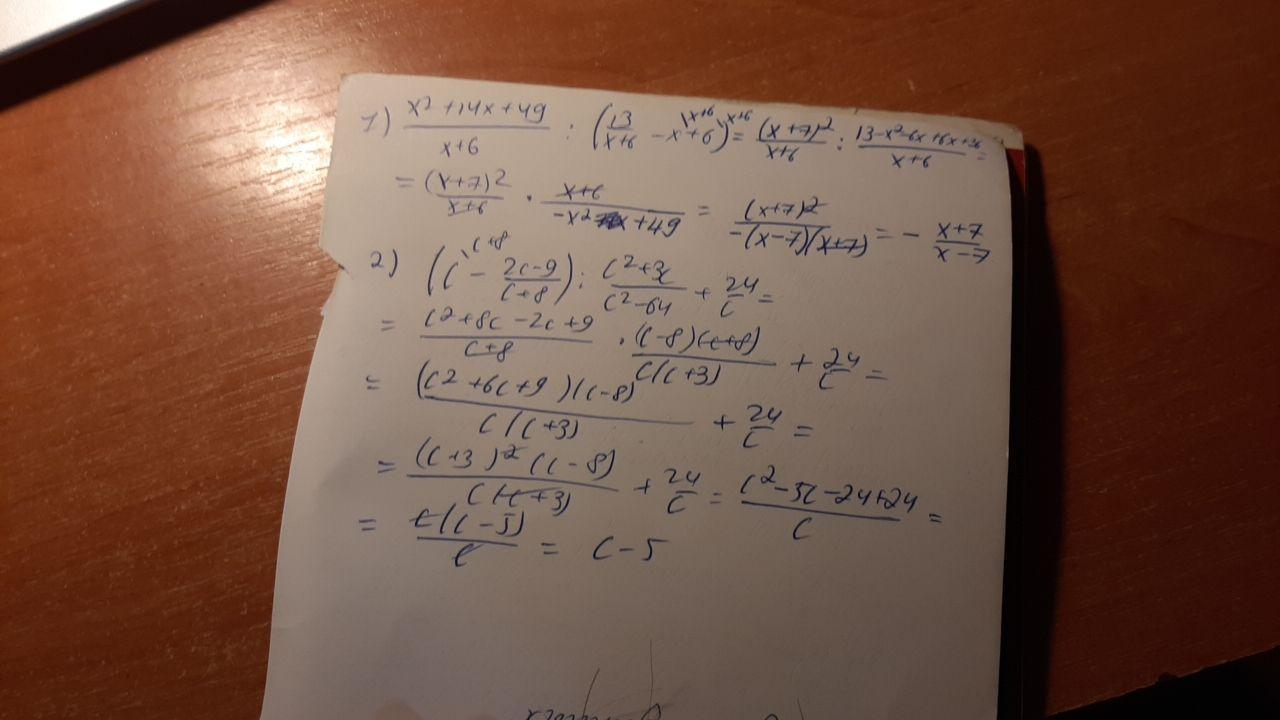 1) (x² + 14x + 49)/(x+6) : (13/(x+6) - x\x+6 + 6\x+6) = (x+7)²/(x+6) : (13-x²-6x+6x+36)/(x+6) =
= (x+7)²/(x+6) · (x+6)/(-x² + 49) = (x+7)²/(-(x-7)(x+7)) = - (x+7)/(x-7)
2) (c\c+8 - (2c-9)/(c+8)) : (c²+3c)/(c²-64) + 24/c =
= (c²+8c-2c+9)/(c+8) · (c-8)(c+8)/(c(c+3)) + 24/c =
= (c²+6c+9)(c-8)/(c(c+3)) + 24/c =
= (c+3)²(c-8)/(c(c+3)) + 24/c = (c²-5c-24+24)/c =
= c(c-5)/c = c-5